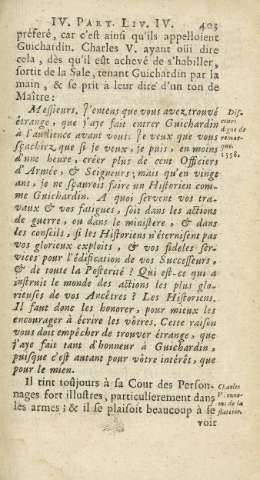 IV. PART. LIV. IV. 403
preferé, car c'est ainsi qu'ils appelloient
Guichardin. Charles V. ayant oüi dire
cela, dès qu'il eût achevé de s'habiller,
sortit de la Sale, tenant Guichardin par la
main, & se prit à leur dire d'un ton de
Maître:
Messieurs. J'entens que vous avez trouvé
étrange, que j'aye fait entrer Guichardin
à l'audience avant vous. Je veux que vous
sçachiez que si je veux, je puis, en moins
d'une heure, créer plus de cent Officiers
d'Armée, & Seigneurs; mais qu'en vingt
ans, je ne sçaurois faire un Historien com-
me Guichardin. A quoi servent vos tra-
vaux & vos fatigues, soit dans les actions
de guerre, ou dans le ministere, & dans
les conseils, si les Historiens n'éternisent pas
vos glorieux exploits, & vos fideles ser-
vices pour l'édification de vos Successeurs,
& de toute la Posterité? Qui est-ce qui a
instruit le monde des actions les plus glo-
rieuses de vos Ancêtres? Les Historiens.
Il faut donc les honorer, pour mieux les
encourager à écrire les vôtres. Cette raison
vous doit empêcher de trouver étrange, que
j'aye fais tant d'honneur à Guichardin,
puisque c'est autant pour vôtre intérêt, que
pour le mien.
Il tint toûjours à sa Cour des Person-
nages fort illustres, particulierement dans
les armes; & il se plaisoit beaucoup à se
voir
Dis-
cours
digne de
remar-
que.
1558.
Charles
V. enne-
mi de la